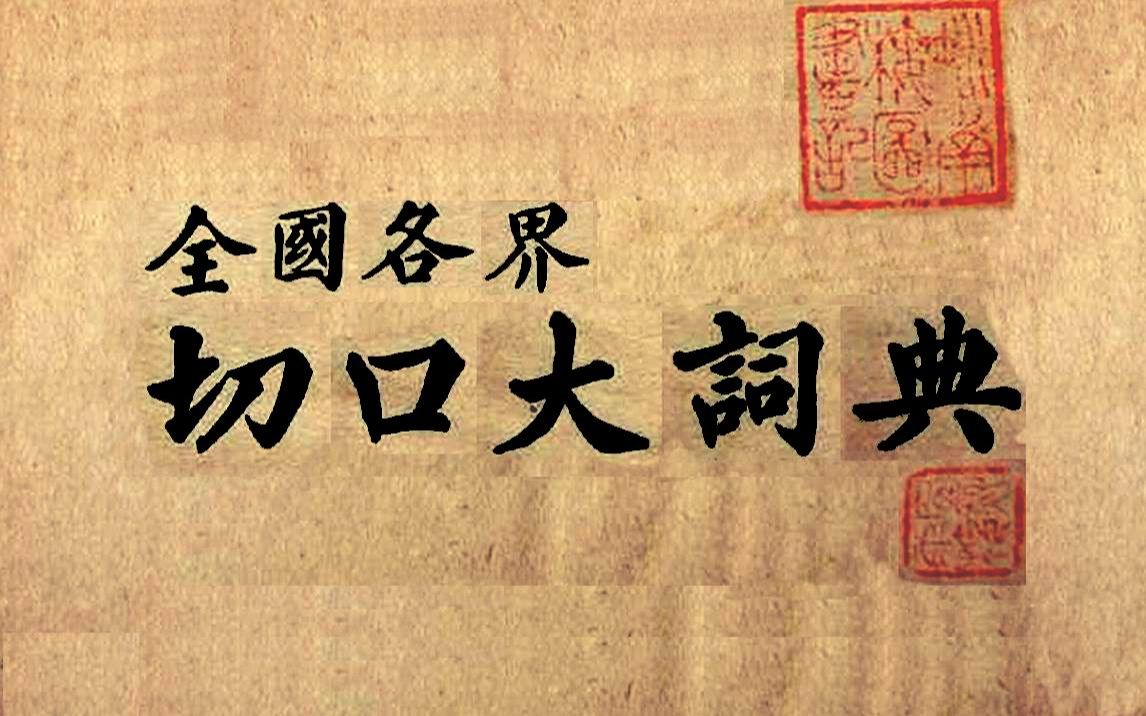 全國各界
切口大詞典